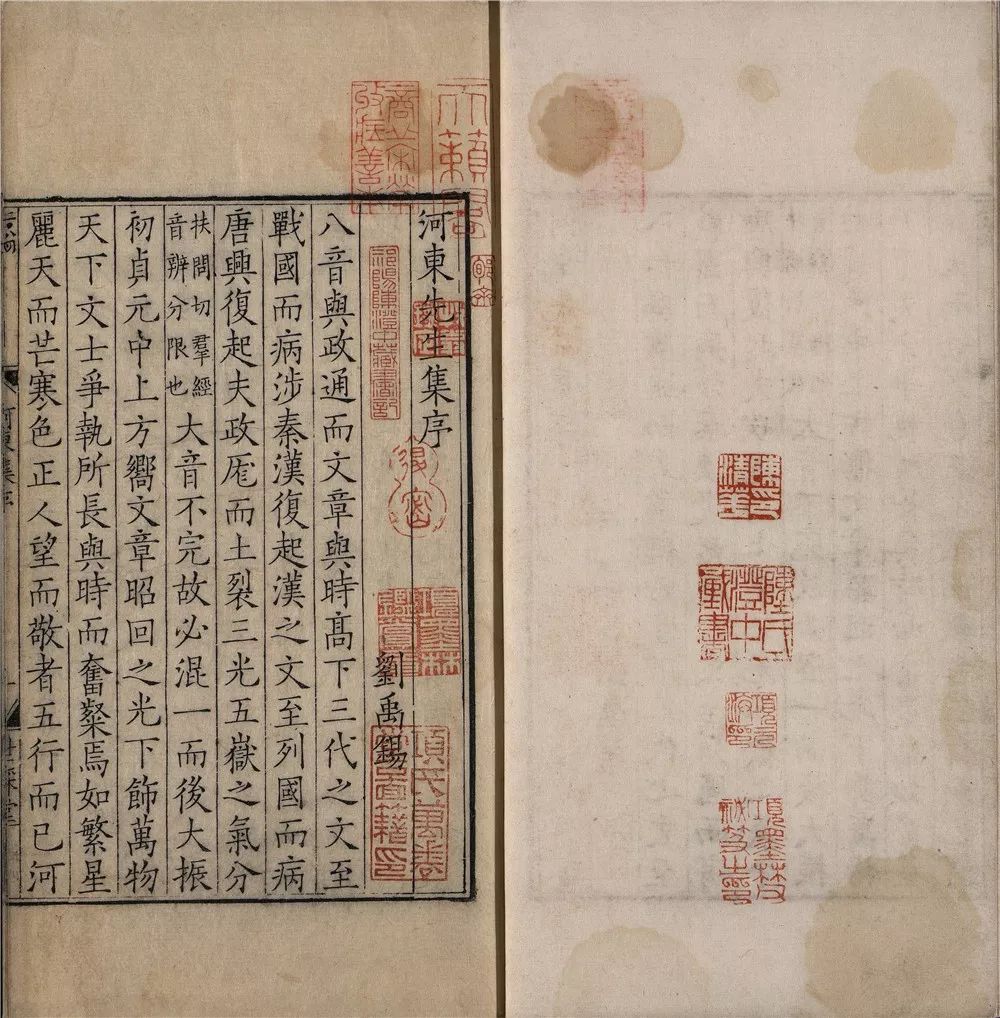 陳印清華
陳氏澄中藏書
河東先生集序
劉禹錫
八音與政通而文章與時髙下三代之文至
戰國而病涉秦漢復起漢之文至列國而病
唐興復起夫政厖而土裂三光五嶽之氣分
扶問切羣經
音辨分限也
大音不完故必混一而後大振
初貞元中上方嚮文章昭回之光下飾萬物
天下文士爭執所長與時而奮粲焉如繁星
麗天而芒寒色正人望而敬者五行而已河
祁陽陳澄中藏書記
項氏萬卷
堂圖籍印
世綵堂